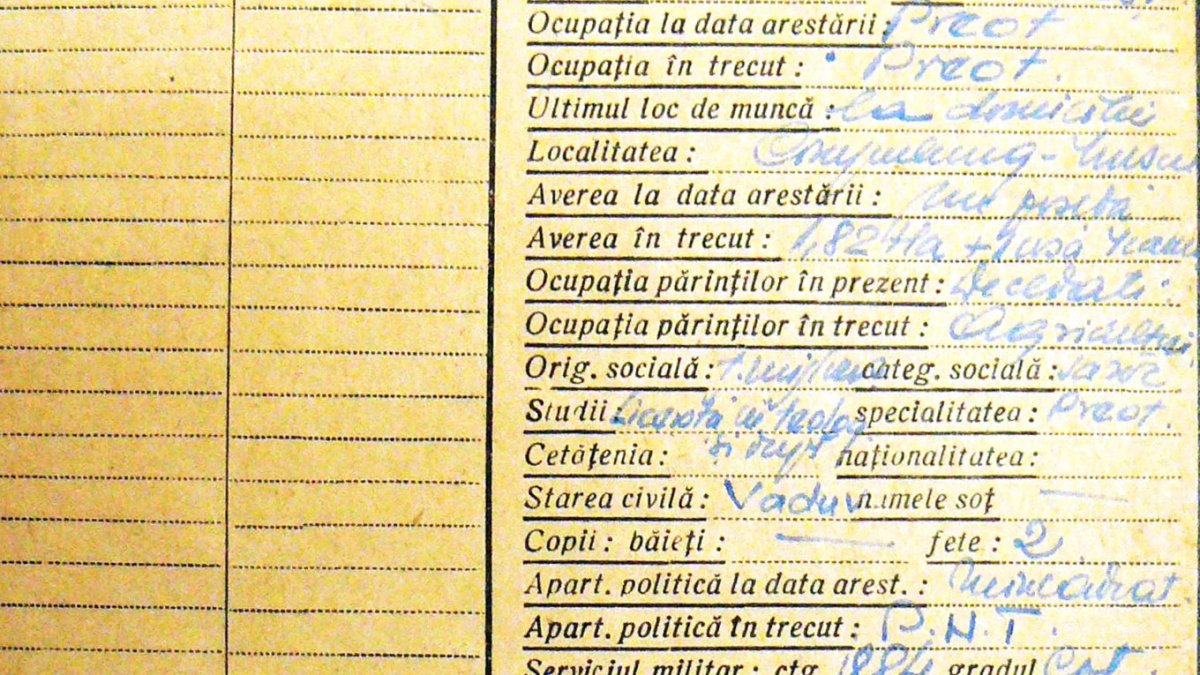 Ocupația la data arestării: Preot
Ocupația în trecut: Preot.
Ultimul loc de muncă: la domiciliu
Localitatea:
Averea la data arestării: nu posedă
Averea în trecut: 1,82 Ha + casă
Ocupația părinților în prezent: Decedati.
Ocupația părinților în trecut: Agricultori
Orig. socială: categ. socială:
Studii: în teolog specialitatea: Preot.
Cetățenia: și drept naționalitatea:
Starea civilă: Vaduv numele soț —
Copii: băieți: — fete: 2
Apart. politică la data arest.: Neincadrat.
Apart. politică în trecut: P.N.T.
Serviciul militar: ctg. gradul